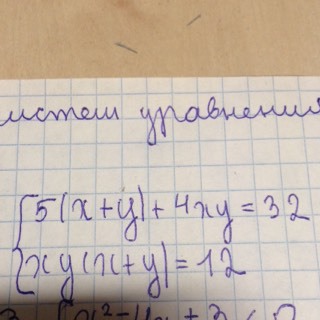 систем уравнения
5(x+y)+4xy=32
xy(x+y)=12